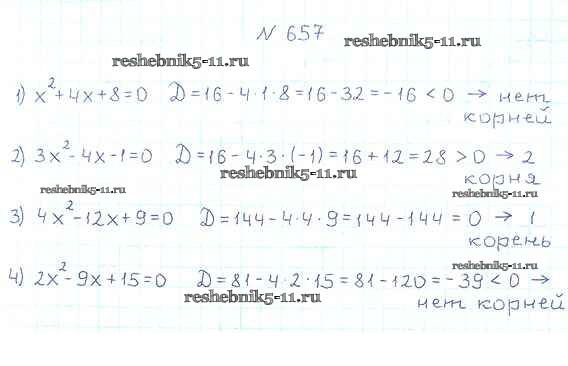 N 657
reshebnik5-11.ru
reshebnik5-11.ru
1) x²+4x+8=0 D=16-4·1·8=16-32=-16<0 → нет
корней
2) 3x²-4x-1=0 D=16-4·3·(-1)=16+12=28>0 → 2
reshebnik5-11.ru
корня
reshebnik5-11.ru
reshebnik5-11.ru
3) 4x²-12x+9=0 D=144-4·4·9=144-144=0 → 1
корень
reshebnik5-11.ru
4) 2x²-9x+15=0 D=81-4·2·15=81-120=-39<0 →
reshebnik5-11.ru
нет корней